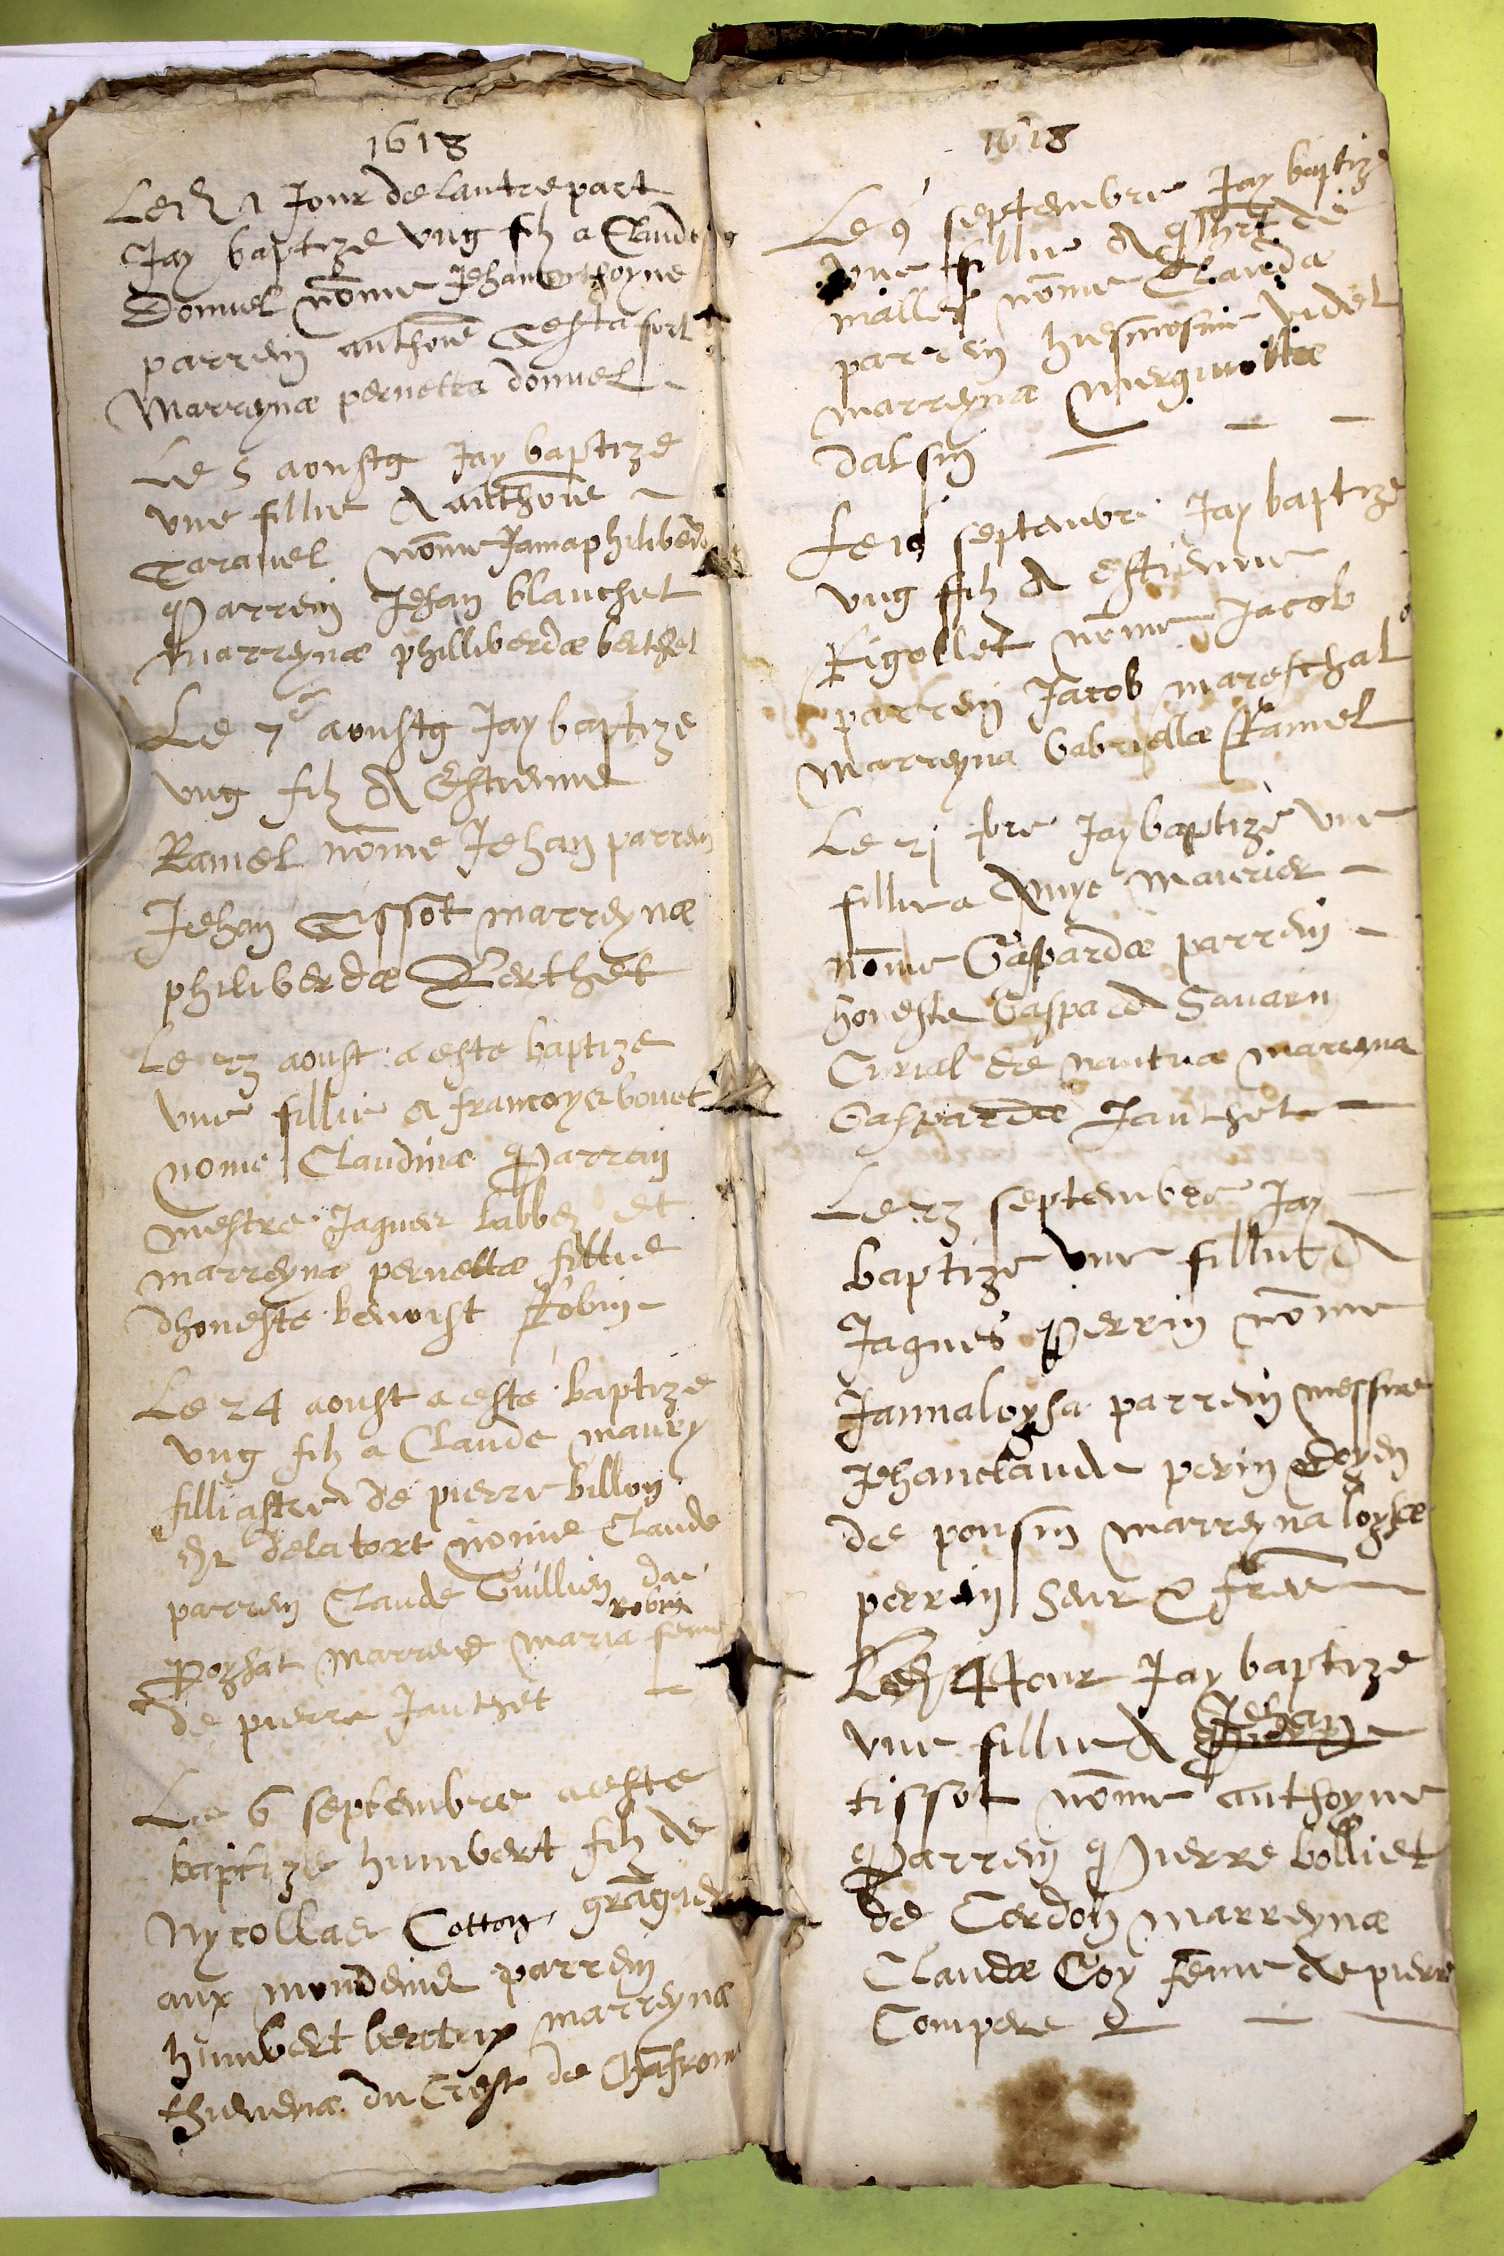 1618
Le jour de lautre part
Jay baptize ung filz a Claude
Donuel nōme Jehananthoyne
parrein anthoīe Testafort
Marreynae pernettae donuel
Le 5 aoustg Jay baptize
une fillie A anthoīe
Caravel nōme Janaphiliberd
Parrein Jehan blanchet
Marreynae philliberdae berthet
Le 7 aoustg Jay baptize
ung filz A Estienne
Ramel nōme Jehan parrein
Jehan Tissot marreynae
philiberdae Berthet
Le 23 aoust a este baptize
une fillie A francoys bonet
nome Claudinae Parrein
mestre Jaques labbez et
marreynae pernettae fillie
dhoneste benoist Robin
Le 24 aoust a este baptize
ung filz a Claude maury
filliastre de pierre billion
delatort nōme Claude
parrein Claude Guillien de
robin
Poysat marreine maria feme
de pierre Janthet
Le 6 septembre a este
baptize humbert filz de
Nycollas Cotton grāgier
aux parrein
humbert beatrix marreynae
thievenae du Crest de
1618
Le 9 septembre Jay baptize
une fillie A
mallet nōme Claudae
parrein vidal
marreynae
dalsin
Le 16 septembre Jay baptize
ung filz A Estienne
Rigollet nōme Jacob
parrein Jacob mareschal
Marreyna Gabriellae Ramel
Le 21 7bre Jay baptize une
fillie a Amye Maurier
nōme Gaspardae parrein
honeste Gaspard Savarin
Curial de nantua mareyna
Gaspardae Janthet
Le 23 septembre Jay
baptize une fillie A
Jaques Perrin nōme
Jannaloysa parrein messire
Jehanclaude perin doyen
de ponsin marreyna loysae
perrein Seur & frere
Le 24 Jour Jay baptize
Jehan
une fillie A
tissot nōme anthoyne
Parrein Pierre bolliet
de Cerdon marreynae
Claudae Coy feme de pierre
Compere